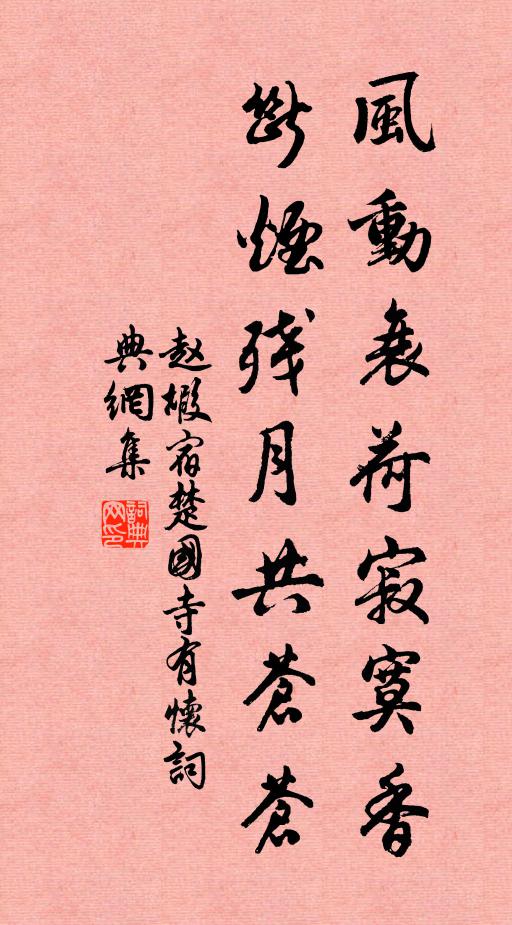 風動衰荷寂寞香
斷煙残月共蒼蒼
赵嘏宿楚國寺有懷詞
典網集
詞典网印